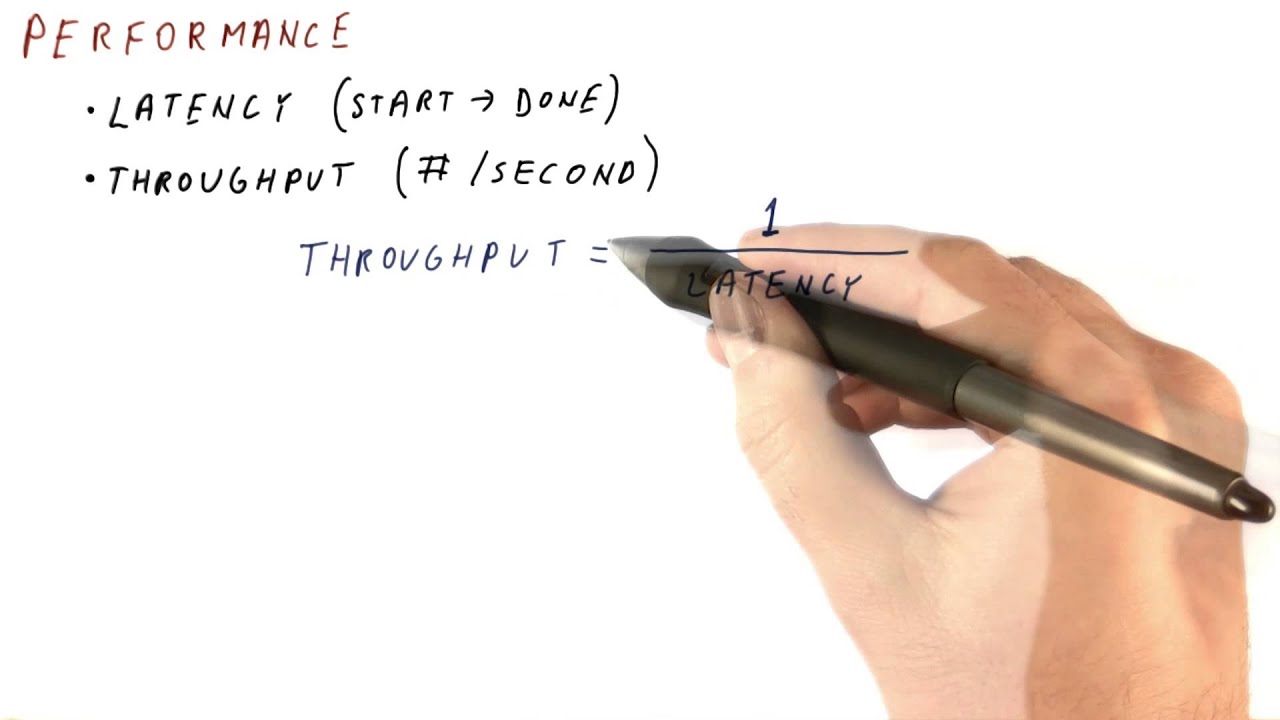 PERFORMANCE
• LATENCY (START → DONE)
• THROUGHPUT (# /SECOND)
THROUGHPUT = 1
LATENCY